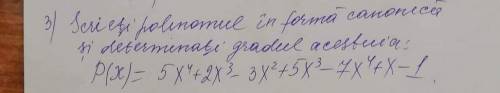 3) Scrieți polinomul în formă canonică
și determinați gradul acestuia:
P(x)= 5x⁴+2x³-3x²+5x³-7x⁴+x-1.